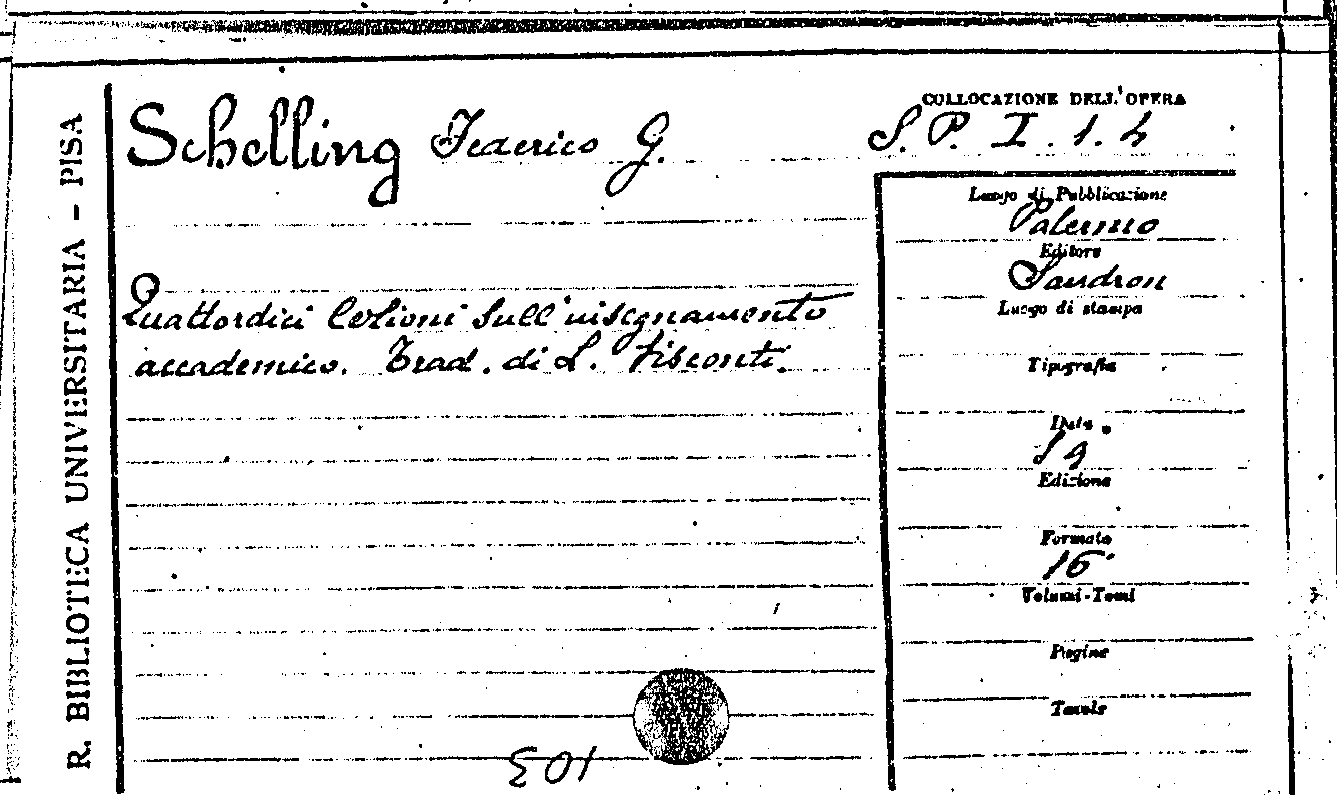 R. BIBLIOTECA UNIVERSITARIA – PISA
Schelling Federico G.
Quattordici lezioni sull'insegnamento
accademico. Trad. di L. Visconti.
COLLOCAZIONE DELL'OPERA
S. P. I. 1. 4
Luogo di Pubblicazione
Palermo
Editore
Sandron
Luogo di stampa
Tipografia
Data
Edizione
Formato
16°
Volumi-Tomi
Pagine
Tavole
103